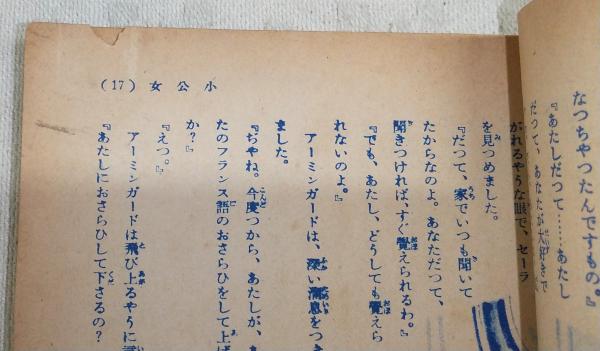 なつちやつたんですもの。』
『あたしだつて……あたし
だつて、あなたが大好きで
小公女 (17)
がれるやうな眼で、セーラ
を見つめました。
『だつて、家でいつも聞いて
たからなのよ。あなただつて、
聞きつければ、すぐ覺えられるわ。』
『でも、あたし、どうしても覺えら
れないのよ。』
アーミンガードは、深い溜息をつ
ました。
『ぢやね。今度つから、あたしが、あ
たのフランス語のおさらひをして上げ
か？』
『えつ。』
アーミンガードは飛び上るやうに言
『あたしにおさらひして下さるの？